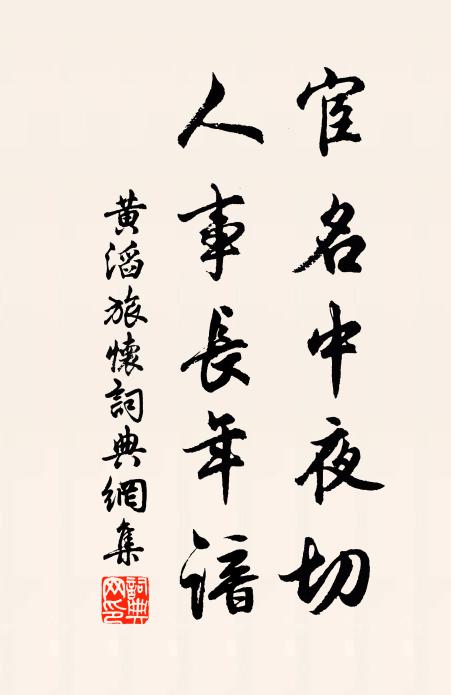 宦名中夜切
人事長年諳
黄滔旅懷詞典網集
詞典网印